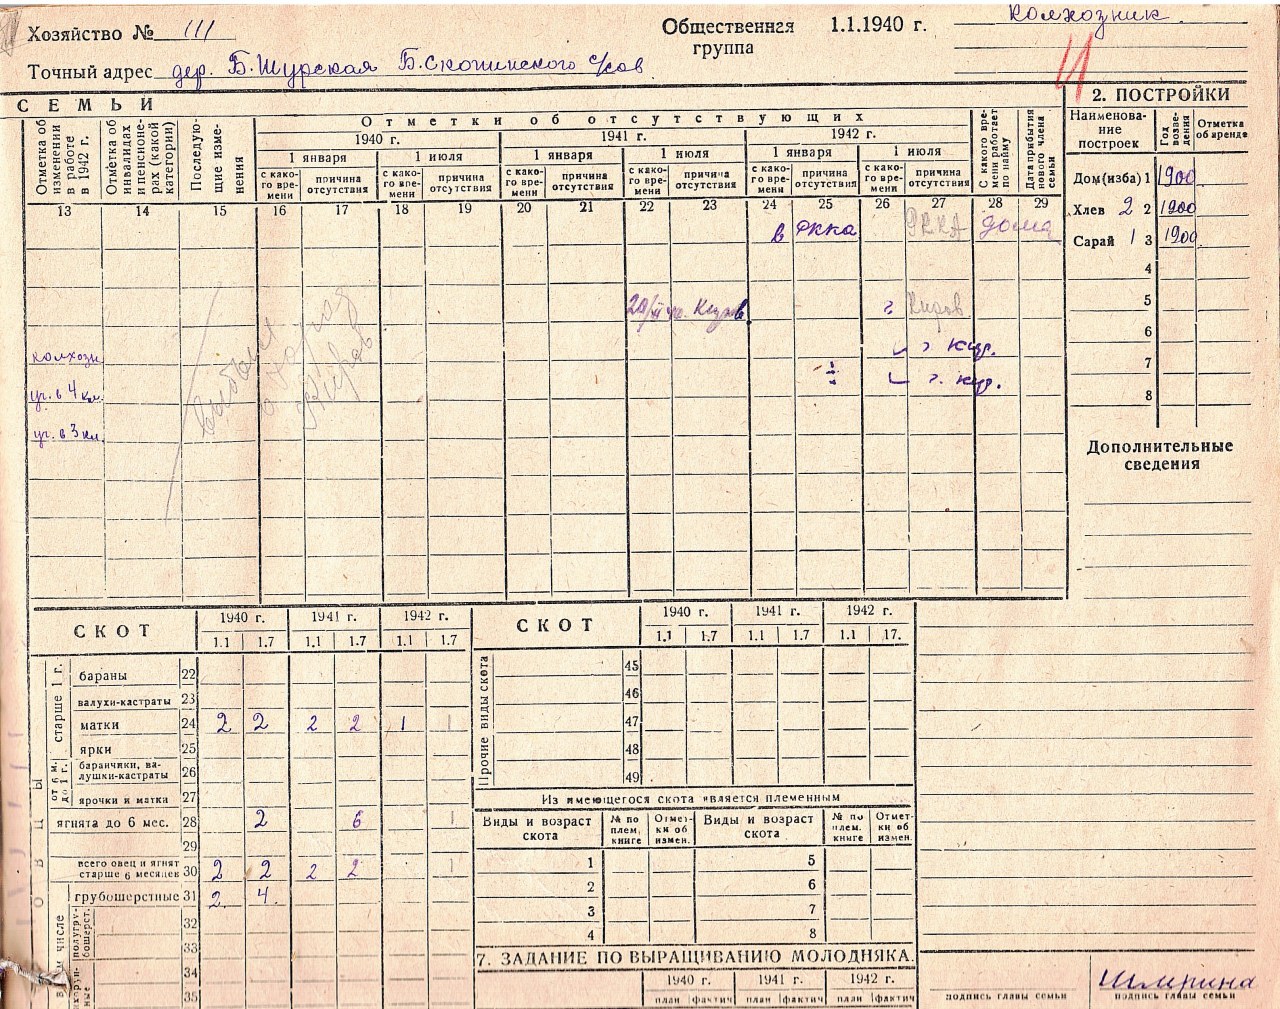 Хозяйство № 111
Общественная группа 1.1.1940 г. колхозник
Точный адрес дер. Б.Шурская Б.Скопинского с/сов
11
СЕМЬИ
Отметка об изменении в работе в 1942 г.
Отметка об инвалидах и пенсионерах (какой категории)
Последующие изменения
Отметки об отсутствующих
1940 г. 1941 г. 1942 г.
1 января 1 июля 1 января 1 июля 1 января 1 июля
с како-го вре-мени причина отсутствия с како-го вре-мени причина отсутствия с како-го вре-мени причина отсутствия с како-го вре-мени причина отсутствия с како-го вре-мени причина отсутствия с како-го вре-мени причина отсутствия
С какого времени работает по найму
Дата прибытия нового члена семьи
13 14 15 16 17 18 19 20 21 22 23 24 25 26 27 28 29
в РККА РККА дома
г. Киров
колхозн. г. кир.
уч. в 4 кл. г. кир.
уч. в 3 кл.
выбыла
Киров
2. ПОСТРОЙКИ
Наименование построек Год возведения Отметка об аренде
Дом(изба) 1 1900
Хлев 2 2 1900
Сарай 1 3 1900
4
5
6
7
8
Дополнительные
сведения
СКОТ 1940 г. 1941 г. 1942 г.
1.1 1.7 1.1 1.7 1.1 1.7
ОВЦЫ
старше 1 г.
бараны 22
валухи-кастраты 23
матки 24 2 2 2 2 1 1
ярки 25
от 6 м. до 1 г.
баранчики, ва-
лушки-кастраты 26
ярочки и матки 27
ягнята до 6 мес. 28 2 6 1
29
всего овец и ягнят
старше 6 месяцев 30 2 2 2 2 1
в том числе
грубошерстные 31 2 4
полугрубошерст. 32
33
34
35
СКОТ 1940 г. 1941 г. 1942 г.
1.1 1.7 1.1 1.7 1.1 17.
Прочие виды скота
45
46
47
48
49
Из имеющегося скота является племенным
Виды и возраст скота № по плем. книге Отметки об измен. Виды и возраст скота № по плем. книге Отметки об измен.
1 5
2 6
3 7
4 8
7. ЗАДАНИЕ ПО ВЫРАЩИВАНИЮ МОЛОДНЯКА.
1940 г. 1941 г. 1942 г.
план фактич план фактич план фактич
Шмырина
подпись главы семьи подпись главы семьи